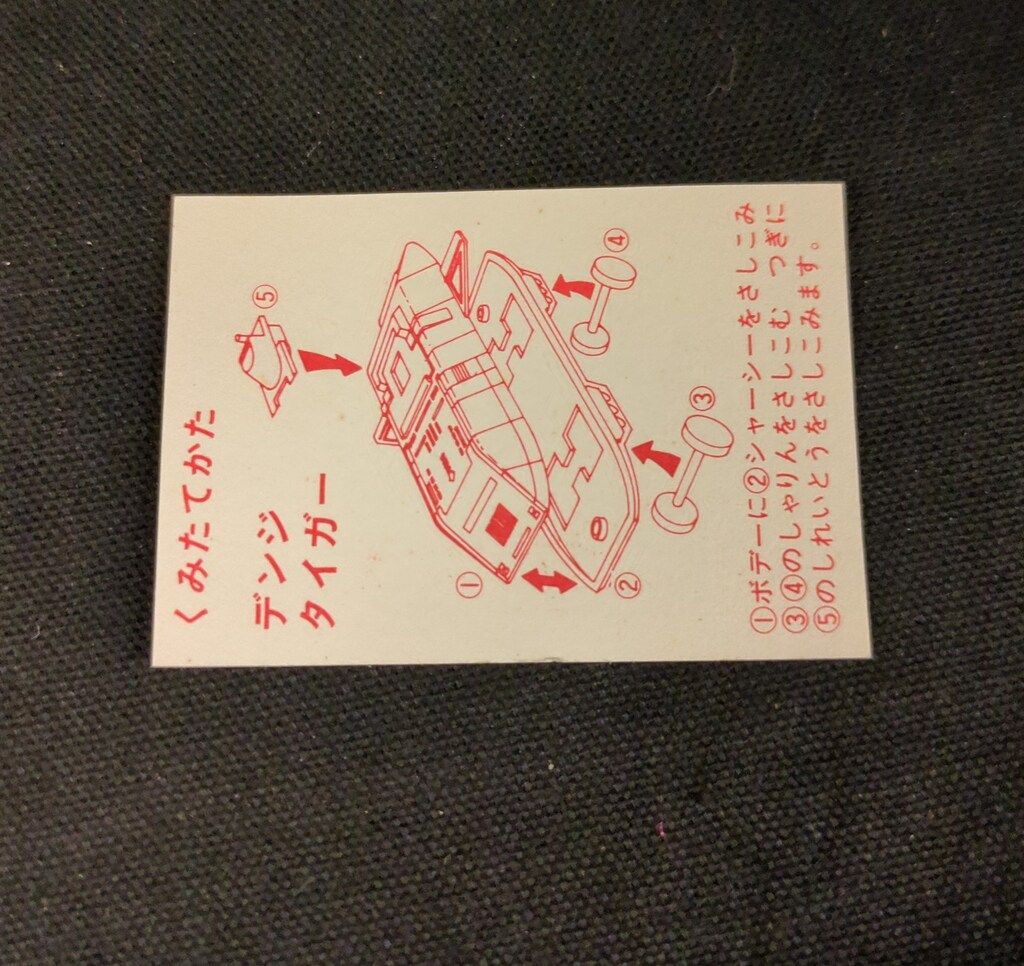 くみたてかた
デンジ
タイガー
⑤
④
③
①
②
①ボデーに②シャーシーをさしこみ
③④のしゃりんをさしこむ つぎに
⑤のしれいとうをさしこみます。